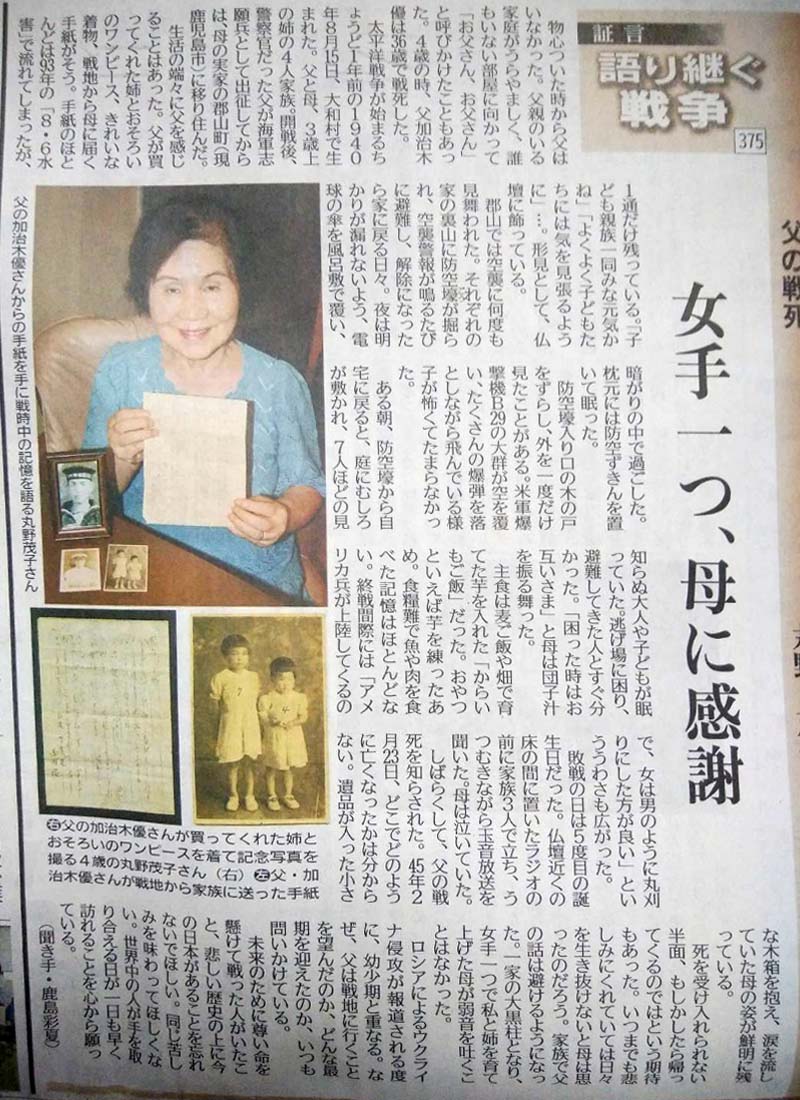 証言
語り継ぐ
戦争
375
女手一つ、母に感謝
物心ついた時から父は
いなかった。父親のいる
家庭がうらやましく、誰
もいない部屋に向かって
「お父さん、お父さん」
と呼びかけたこともあっ
た。4歳の時、父加治木
優は36歳で戦死した。
太平洋戦争が始まるち
ょうど1年前の1940
年8月15日、大和村で生
まれた。父と母、3歳上
の姉の4人家族。開戦後、
警察官だった父が海軍志
願兵として出征してから
は、母の実家の郡山町(現
鹿児島市)に移り住んだ。
生活の端々に父を感じ
ることはあった。父が買
ってくれた姉とおそろい
のワンピース、きれいな
着物、戦地から母に届く
手紙がそう。手紙のほと
んどは93年の「8・6水
害」で流れてしまったが、
1通だけ残っている。「子
ども親族一同みな元気か
ね」「よくよく子どもた
ちには気を見張るよう
に」…。形見として、仏
壇に飾っている。
郡山では空襲に何度も
見舞われた。それぞれの
家の裏山に防空壕が掘ら
れ、空襲警報が鳴るたび
に避難し、解除になった
ら家に戻る日々。夜は明
かりが漏れないよう、電
球の傘を風呂敷で覆い、
暗がりの中で過ごした。
枕元には防空ずきんを置
いて眠った。
防空壕入り口の木の戸
をずらし、外を一度だけ
見たことがある。米軍爆
撃機B29の大群が空を覆
い、たくさんの爆弾を落
としながら飛んでいる様
子が怖くてたまらなかっ
た。
ある朝、防空壕から自
宅に戻ると、庭にむしろ
が敷かれ、7人ほどの見
知らぬ大人や子どもが眠
っていた。逃げ場に困り、
避難してきた人とすぐ分
かった。「困った時はお
互いさま」と母は団子汁
を振る舞った。
主食は麦ご飯や畑で育
てた芋を入れた「からい
もご飯」だった。おやつ
といえば芋を練ったあ
め。食糧難で魚や肉を食
べた記憶はほとんどな
い。終戦間際には「アメ
リカ兵が上陸してくるの
で、女は男のように丸刈
りにした方が良い」とい
ううわさも広がった。
敗戦の日は5度目の誕
生日だった。仏壇近くの
床の間に置いたラジオの
前に家族3人で立ち、う
つむきながら玉音放送を
聞いた。母は泣いていた。
しばらくして、父の戦
死を知らされた。45年2
月23日、どこでどのよう
に亡くなったかは分から
ない。遺品が入った小さ
な木箱を抱え、涙を流し
ていた母の姿が鮮明に残
っている。
死を受け入れられない
半面、もしかしたら帰っ
てくるのではという期待
もあった。いつまでも悲
しみにくれていては日々
を生き抜けないと母は思
ったのだろう。家族で父
の話は避けるようになっ
た。一家の大黒柱となり、
女手一つで私と姉を育て
上げた母が弱音を吐くこ
とはなかった。
ロシアによるウクライ
ナ侵攻が報道される度
に、幼少期と重なる。な
ぜ、父は戦地に行くこと
を望んだのか、どんな最
期を迎えたのか、いつも
問いかけている。
未来のために尊い命を
懸けて戦った人がいたこ
と、悲しい歴史の上に今
の日本があることを忘れ
ないでほしい。同じ苦し
みを味わってほしくな
い。世界中の人が手を取
り合える日が一日も早く
訪れることを心から願っ
ている。
(聞き手・鹿島彩夏)
父の加治木優さんからの手紙を手に戦時中の記憶を語る丸野茂子さん
㊨父の加治木優さんが買ってくれた姉と
おそろいのワンピースを着て記念写真を
撮る4歳の丸野茂子さん(右)㊧父・加
治木優さんが戦地から家族に送った手紙
父の戦死